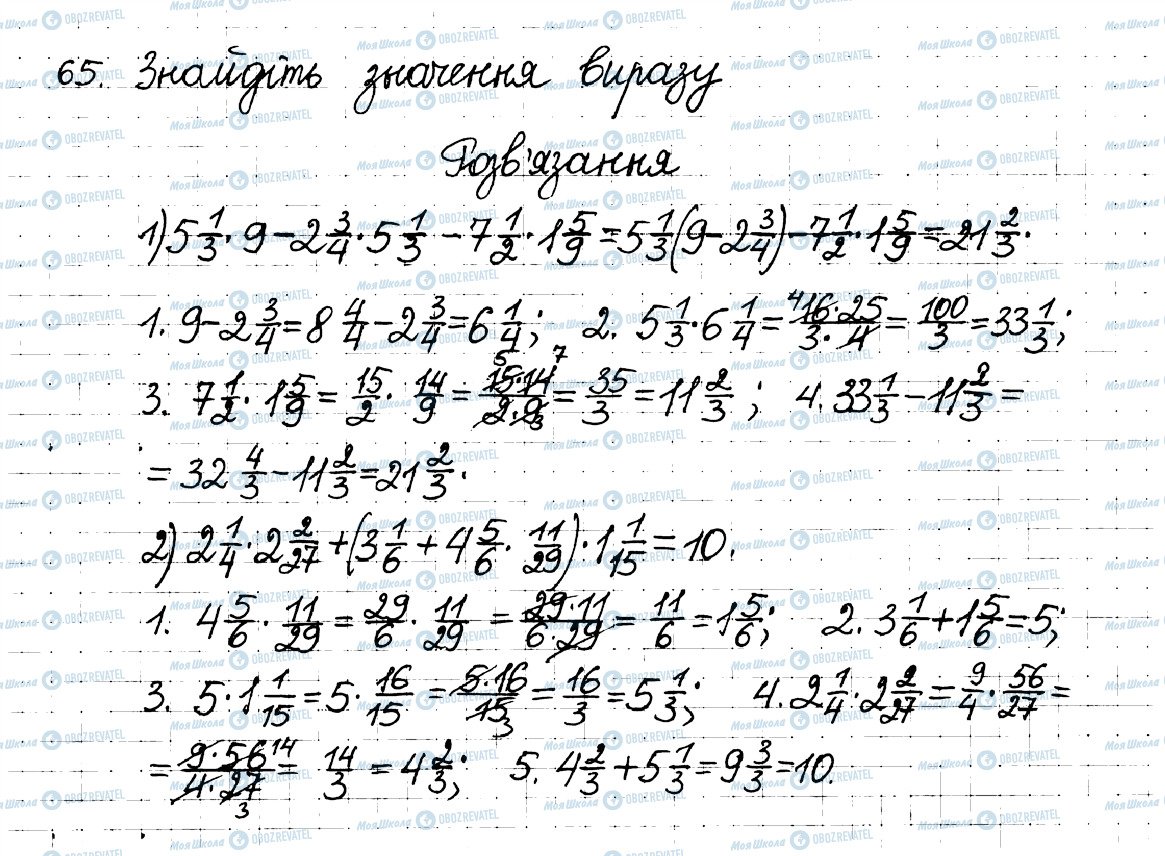 65. Знайдіть значення виразу
Розв'язання
1) 5 1/3 · 9 - 2 3/4 · 5 1/3 - 7 1/2 · 1 5/9 = 5 1/3 (9 - 2 3/4) - 7 1/2 · 1 5/9 = 21 2/3.
1. 9 - 2 3/4 = 8 4/4 - 2 3/4 = 6 1/4; 2. 5 1/3 · 6 1/4 = 4 16·25/3·4 = 100/3 = 33 1/3;
3. 7 1/2 · 1 5/9 = 15/2 · 14/9 = 5 15·14 7/2·9 3 = 35/3 = 11 2/3; 4. 33 1/3 - 11 2/3 =
= 32 4/3 - 11 2/3 = 21 2/3.
2) 2 1/4 · 2 2/27 + (3 1/6 + 4 5/6 · 11/29) · 1 1/15 = 10.
1. 4 5/6 · 11/29 = 29/6 · 11/29 = 29·11/6·29 = 11/6 = 1 5/6; 2. 3 1/6 + 1 5/6 = 5;
3. 5 · 1 1/15 = 5 · 16/15 = 5·16/15 3 = 16/3 = 5 1/3; 4. 2 1/4 · 2 2/27 = 9/4 · 56/27 =
= 9·56 14/4·27 3 = 14/3 = 4 2/3; 5. 4 2/3 + 5 1/3 = 9 3/3 = 10.
МояШкола OBOZREVATEL